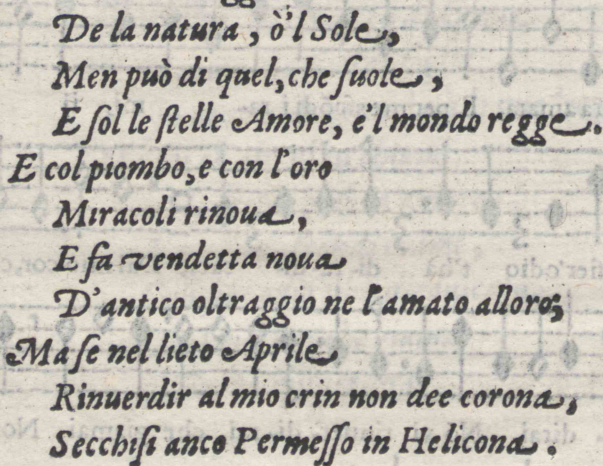 De la natura, ò'l Sole,
Men può di quel, che ſuole,
E ſol le ſtelle Amore, e'l mondo regge.
E col piombo, e con l'oro
Miracoli rinoua,
E fa vendetta noua
D'antico oltraggio ne l'amato alloro;
Ma ſe nel lieto Aprile
Rinuerdir al mio crin non dee corona,
Secchiſi anco Permeſſo in Helicona.